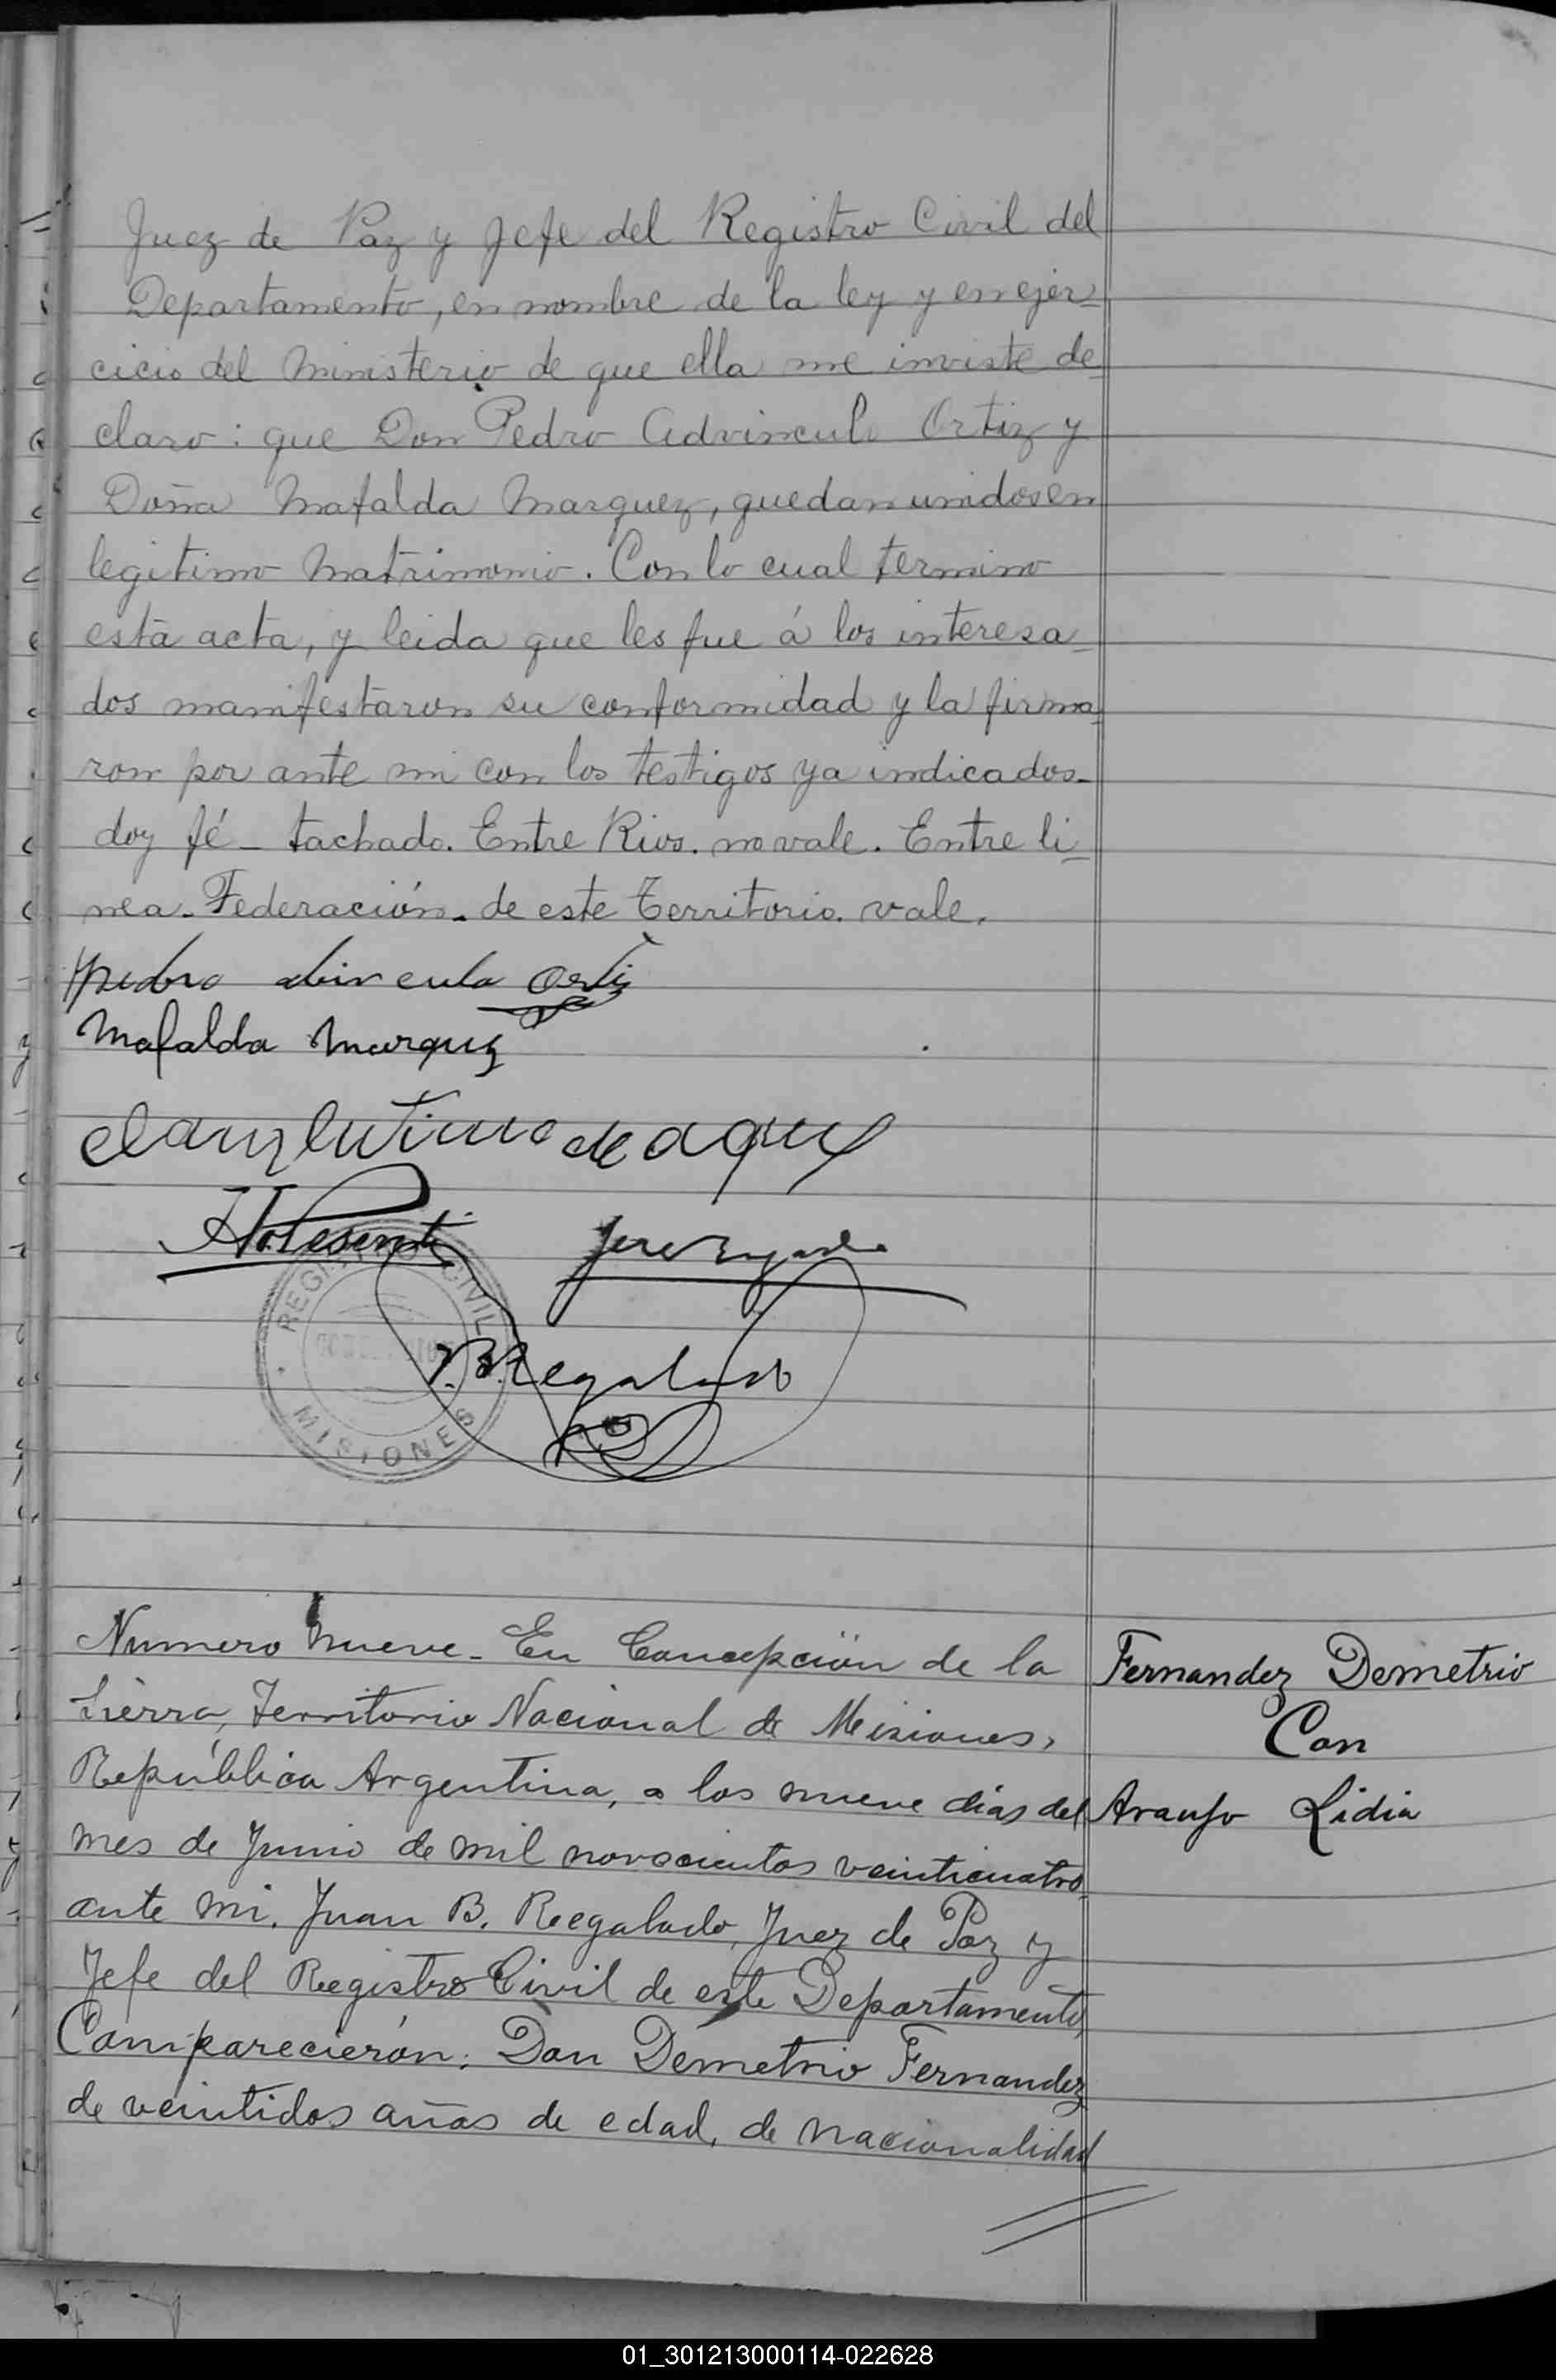 Juez de Paz y Jefe del Registro Civil del
Departamento, en nombre de la ley y en ejer=
cicio del Ministerio de que ella me inviste de
claro: que Don Pedro Advinculo Ortiz y
Doña Mafalda Marquez, quedan unidos en
legitimo Matrimonio. Con lo cual termino
esta acta, y leida que les fue á los interesa=
dos manifestaron su conformidad y la firma=
ron por ante mi con los testigos ya indicados-
doy fé - tachado. Entre Rios. no vale. Entre li=
nea. Federación. de este Territorio. vale.
pedro abincula Orti
Mafalda Marquez
de
H. Pesenti
J. B. Regalado
REGISTRO CIVIL
MISIONES
Numero Nueve - En Concepción de la
Sierra, Territorio Nacional de Misiones,
República Argentina, a los nueve dias del
mes de Junio de mil novecientos veinticuatro
ante mi, Juan B. Regalado, Juez de Paz y
Jefe del Registro Civil de este Departamento,
Comparecierón: Don Demetrio Fernandez
de veintidos años de edad, de nacionalidad
Fernandez Demetrio
Con
Araujo Lidia
01_301213000114-022628